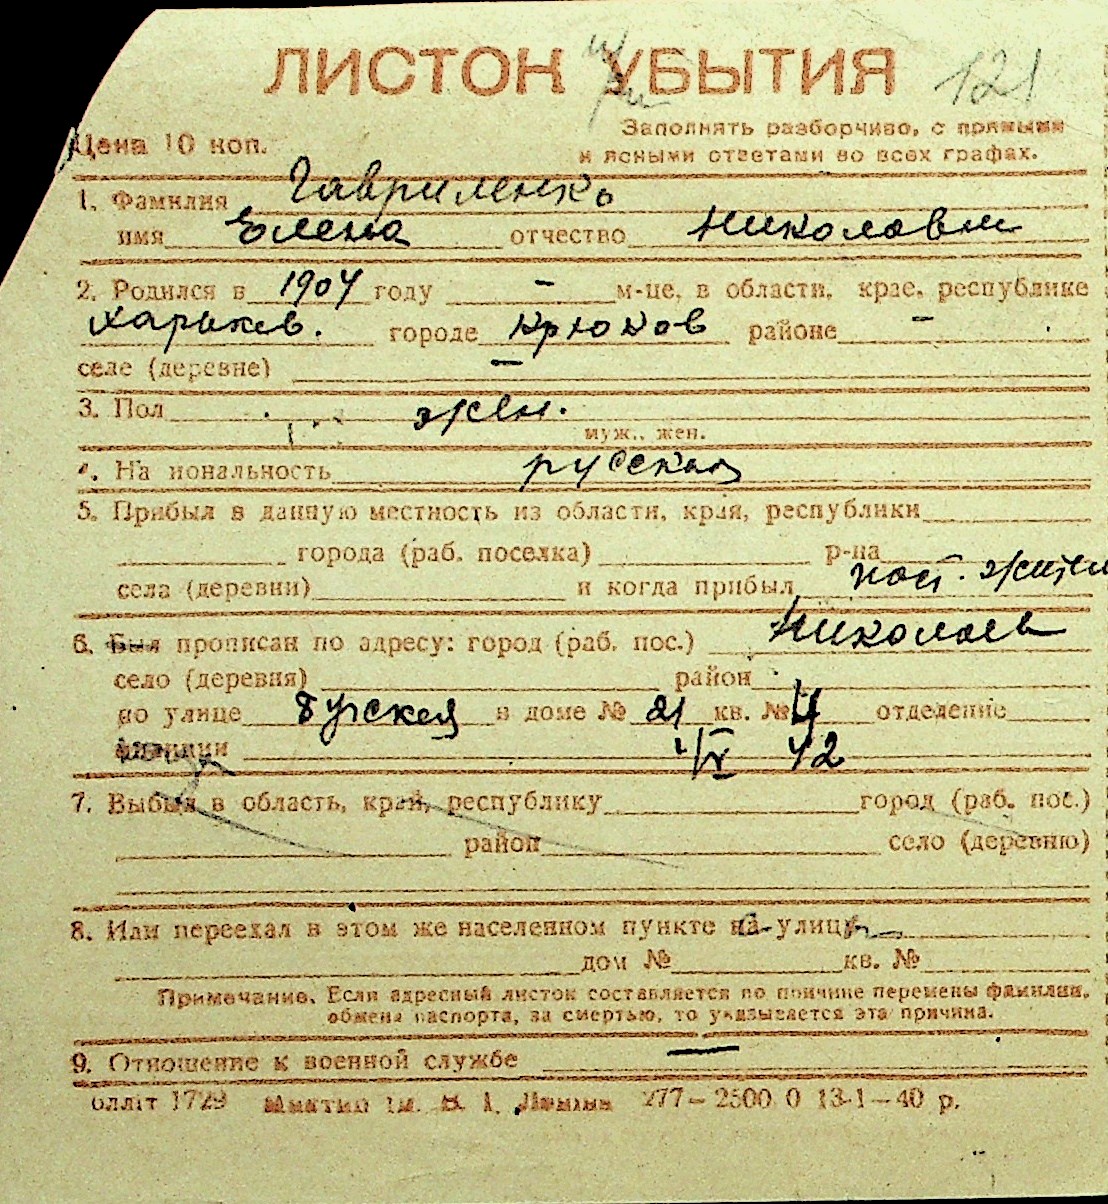 ЛИСТОК УБЫТИЯ 121
Цена 10 коп.
Заполнять разборчиво, с прямыми
и ясными ответами во всех графах.
1. Фамилия Гавриленко
имя Елена отчество Николаевн
2. Родился в 1904 году — м-це, в области, крае, республике
Харьков. городе Крюков районе —
селе (деревне) —
3. Пол жен.
муж., жен.
На иональность русская
5. Прибыл в данную местность из области, края, республики
города (раб. поселка) р-на
села (деревни) и когда прибыл пост. жител
6. Был прописан по адресу: город (раб. пос.) Николаев
село (деревня) район
по улице Бугская в доме № 21 кв. № 4 отделение
милиции 1/IV 42
7. Выбыл в область, край, республику город (раб. пос.)
район село (деревню)
8. Или переехал в этом же населенном пункте на улицу
дом № кв. №
Примечание. Если адресный листок составляется по причине перемены фамилии,
обмена паспорта, за смертью, то указывается эта причина.
9. Отношение к военной службе —
1729 277—2500 0 13-1—40 р.